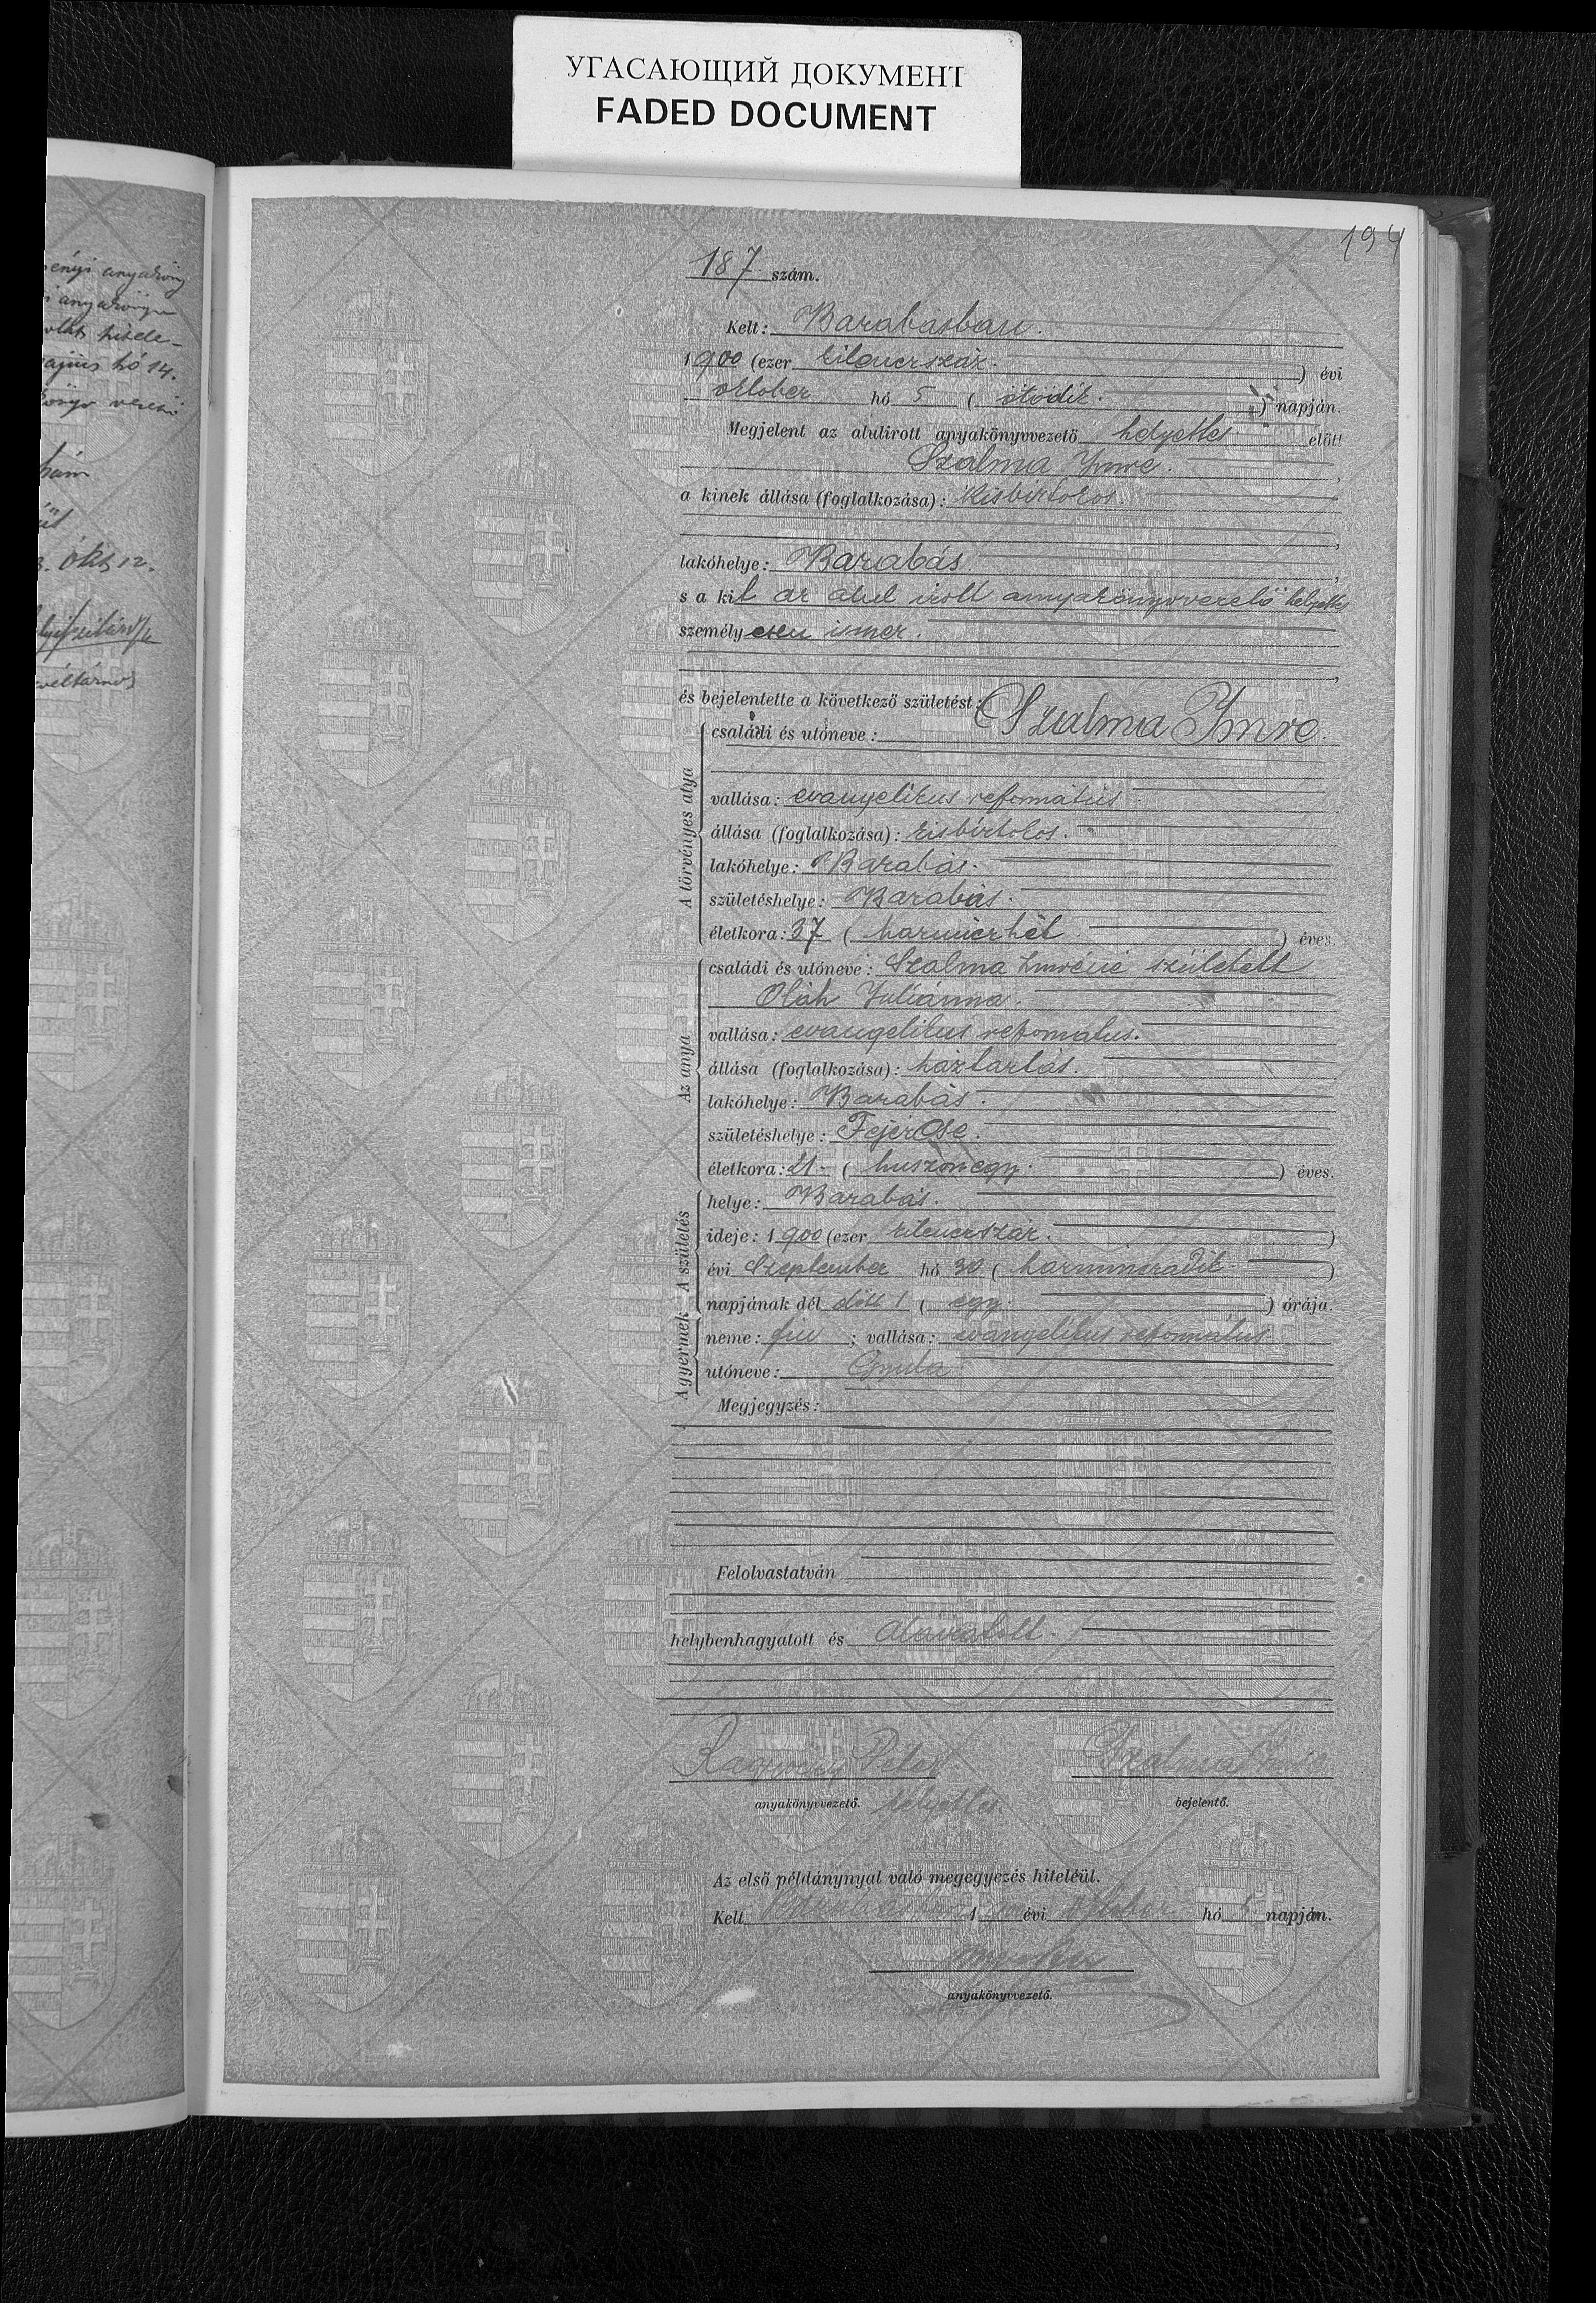 УГАСАЮЩИЙ ДОКУМЕНТ
FADED DOCUMENT
194
ényi anyaköny
i anyakönyv
ajus hó 14.
okt 12.
187 szám.
Kelt: Barabásban.
1900 (ezer kilencszáz.) évi
oktober hó 5 (ötödik.) napján.
Megjelent az alulirott anyakönyvvezető helyettes előtt
Szalma Imre.
a kinek állása (foglalkozása): kisbirtokos.
lakóhelye: Barabás
s a kit az alul irott anyakönyvvezető helyettes
személyesen ismer.
és bejelentette a következő születést:
A törvényes atya
családi és utóneve: Szalma Imre.
vallása: evangelikus reformátús
állása (foglalkozása): kisbirtokos.
lakóhelye: Barabás.
születéshelye: Barabás.
életkora: 37 (harminchét) éves.
Az anya
családi és utóneve: Szalma Imréné született
Oláh Juliánna.
vallása: evangelikus refomatus.
állása (foglalkozása): háztartás.
lakóhelye: Barabás.
születéshelye: Fejércse.
életkora: 21 (huszonegy.) éves.
A születés
helye: Barabás.
ideje: 1900 (ezer kilencszáz.)
évi Szeptember hó 30 (harmincadik)
napjának dél előtt 1 (egy.) órája.
A gyermek
neme: fiu; vallása: evangelikus református
utóneve: Gyula
Megjegyzés:
Felolvastatván
helybenhagyatott és aláiratott.
Péter Szalma Imre
anyakönyvvezető. helyettes. bejelentő.
Az első példánynyal való megegyezés hiteléül.
Kelt Barabásban 1900 évi oktober hó 5 napján.
anyakönyvvezető.